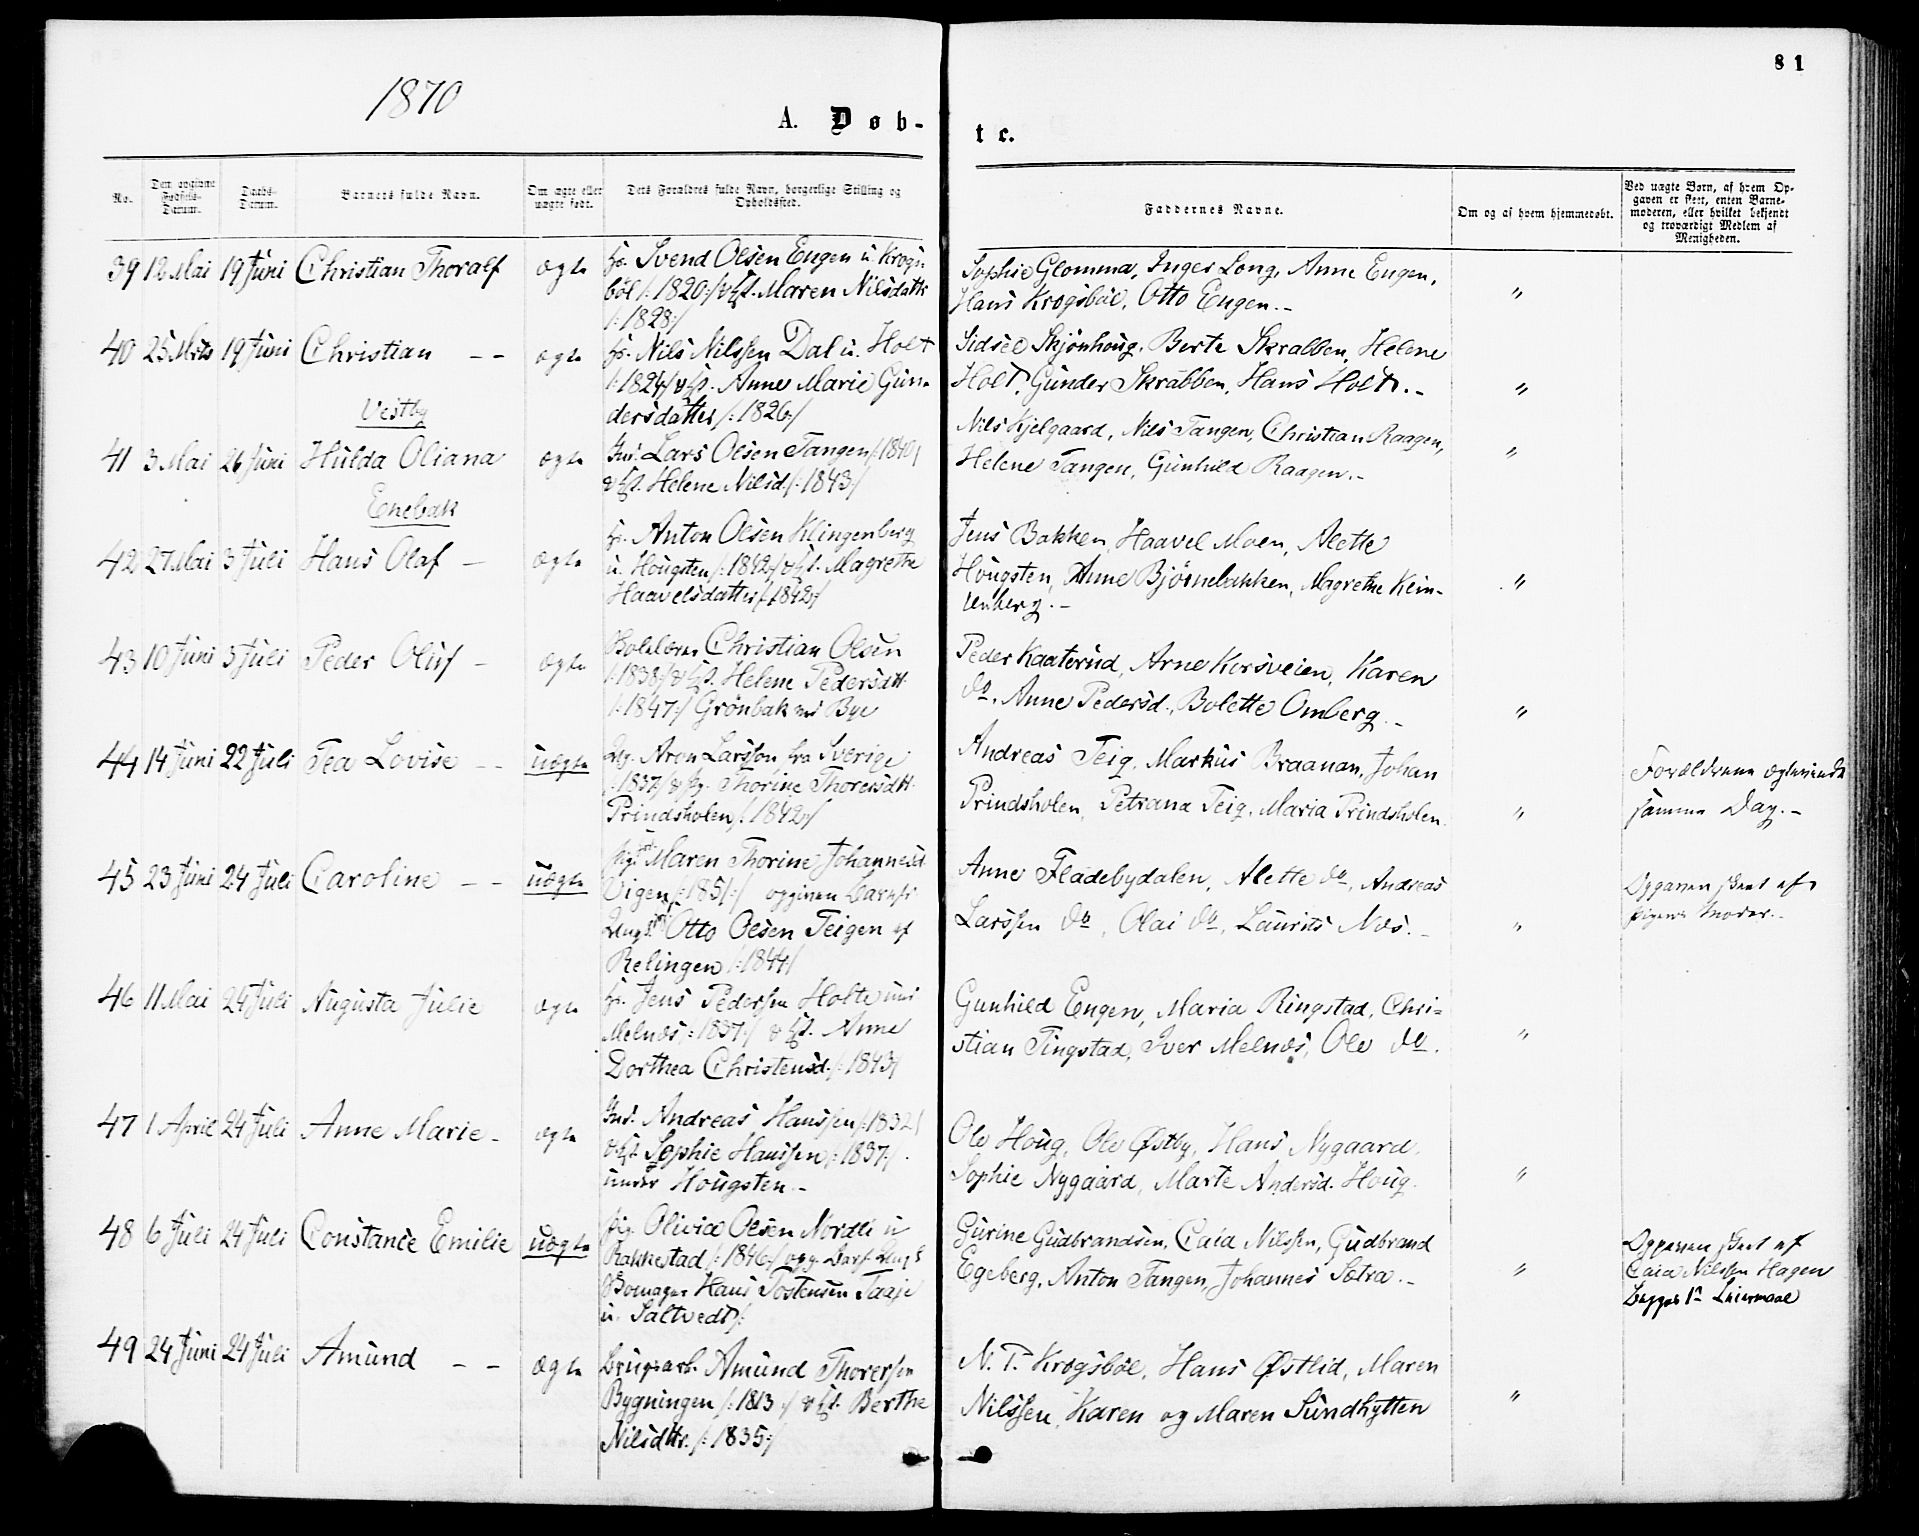 1870
81
A. Døb-
te.
No.
Den opgivne Fødsels-Datum.
Daabs-Datum.
Barnets fulde Navn.
Om ægte eller uægte født.
Dets Forældres fulde Navn, borgerlige Stilling og Opholdssted.
Faddernes Navne.
Om og af hvem hjemmedøbt.
Ved uægte Børn, af hvem Opgaven er skeet, enten Barnemoderen, eller hvilket bekjendt og troværdigt Medlem af Menigheden.
39 12 Mai 19 Juni Christian Thoralf ægte
Svend Olsen Engen u. Krogs
böl /:1820:/ & Maren Nilsdattr
/:1828:/
Sophie Glomma, Inger Long, Anne Engen,
Hans Krogsböl, Otto Engen. -
"
40 25 Mrts 19 Juni Christian - - ægte
Nils Nilssen Dal u. Holt
/:1824/ & Anne Marie Gun-
dersdatter /:1826:/
Sidsel Skjönhoug, Berte Skrabben, Helene
Holt, Gunder Skrabben, Hans Holt. -
"
Vestby
41 3 Mai 26 Juni Hulda Oliana ægte
Ins. Lars Olsen Tangen /:1840/
& Helene Nilsd. /:1843:/
Nils Kjelgaard, Nils Tangen, Christian Raagen,
Helene Tangen, Gunhild Raagen. -
"
Enebak
42 27 Mai 3 Juli Hans Olaf - ægte
Anton Olsen Klingenberg
u. Hougsten /:1842/ & Magrethe
Haavelsdatter /:1842:/
Jens Bakken, Haavel Moen, Alette
Hougsten, Anne Björnebakken, Magrethe Klin-
genberg. -
"
43 10 Juni 3 Juli Peder Oluf - ægte
Christian Olsen
/:1838:/ & Helene Pedersdtt.
/:1847:/ Grönbak Bye
Peder Kaaterud, Arne Korsveien, Karen
do, Anne Pedersd., Bolette Omberg. -
"
44 14 Juni 22 Juli Tea Lovise - - uægte
Ug. Aron Larsson fra Sverige
/:1837/ & Thorine Thorersdtt.
Prindsholen /:1842:/
Andreas Teig, Markus Braanan, Johan
Prindsholen, Petrana Teig, Maria Prindsholen
"
Forældrene ægteviede
samme Dag. -
45 23 Juni 24 Juli Caroline - - uægte
Maren Thorine Johannesd.
Vigen /:1851:/ opgiven Barnefr
Otto Olsen Teigen af
Relingen /:1844/
Anne Fladebydalen, Alette do, Andreas
Larssen do, Olai do, Laurits Næs. -
"
Opgaven skeet af
Pigens Moder. -
46 11 Mai 24 Juli Augusta Julie ægte
Jens Pedersen Holte
Melnæs /:1837:/ & Anne
Dorthea Christensd. /:1843/
Gunhild Engen, Maria Ringstad, Chri-
stian Tingstad, Iver Melnæs, Ole do.
"
47 1 April 24 Juli Anne Marie - ægte
Ins. Andreas Hanssen /:1832/
& Sophie Hanssen /:1837:/
under Hougsten. -
Ole Houg, Ole Østby, Hans Nygaard,
Sophie Nygaard, Marte Andersd. Houg.
"
48 6 Juli 24 Juli Constance Emilie uægte
Pig. Olivia Olsen Nordli u
Rakkestad /:1846:/ opg. Barf. Ungk
Hans Tostensen Taaje
u. Saltvedt /:
Gurine Gudbrandsen, Caia Nilssen, Gudbrand
Egeberg, Anton Tangen, Johannes Sætra. -
"
Opgaven skeet af
Caia Nilssen Hagen
Begges 1ste Leiermaal
49 24 Juni 24 Juli Amund - - ægte
Brugsarb. Amund Thorersen
Bygningen /:1813:/ & Berthe
Nilsdttr. /:1835:/
N. T. Krogsböl, Hans Østlid, Maren
Nilssen, Karen og Maren Sundhytten
"